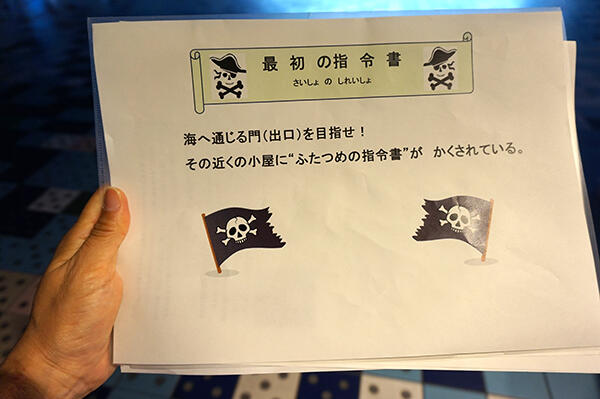 最初の指令書
さいしょ の しれいしょ
海へ通じる門(出口)を目指せ!
その近くの小屋に“ふたつめの指令書”が かくされている。